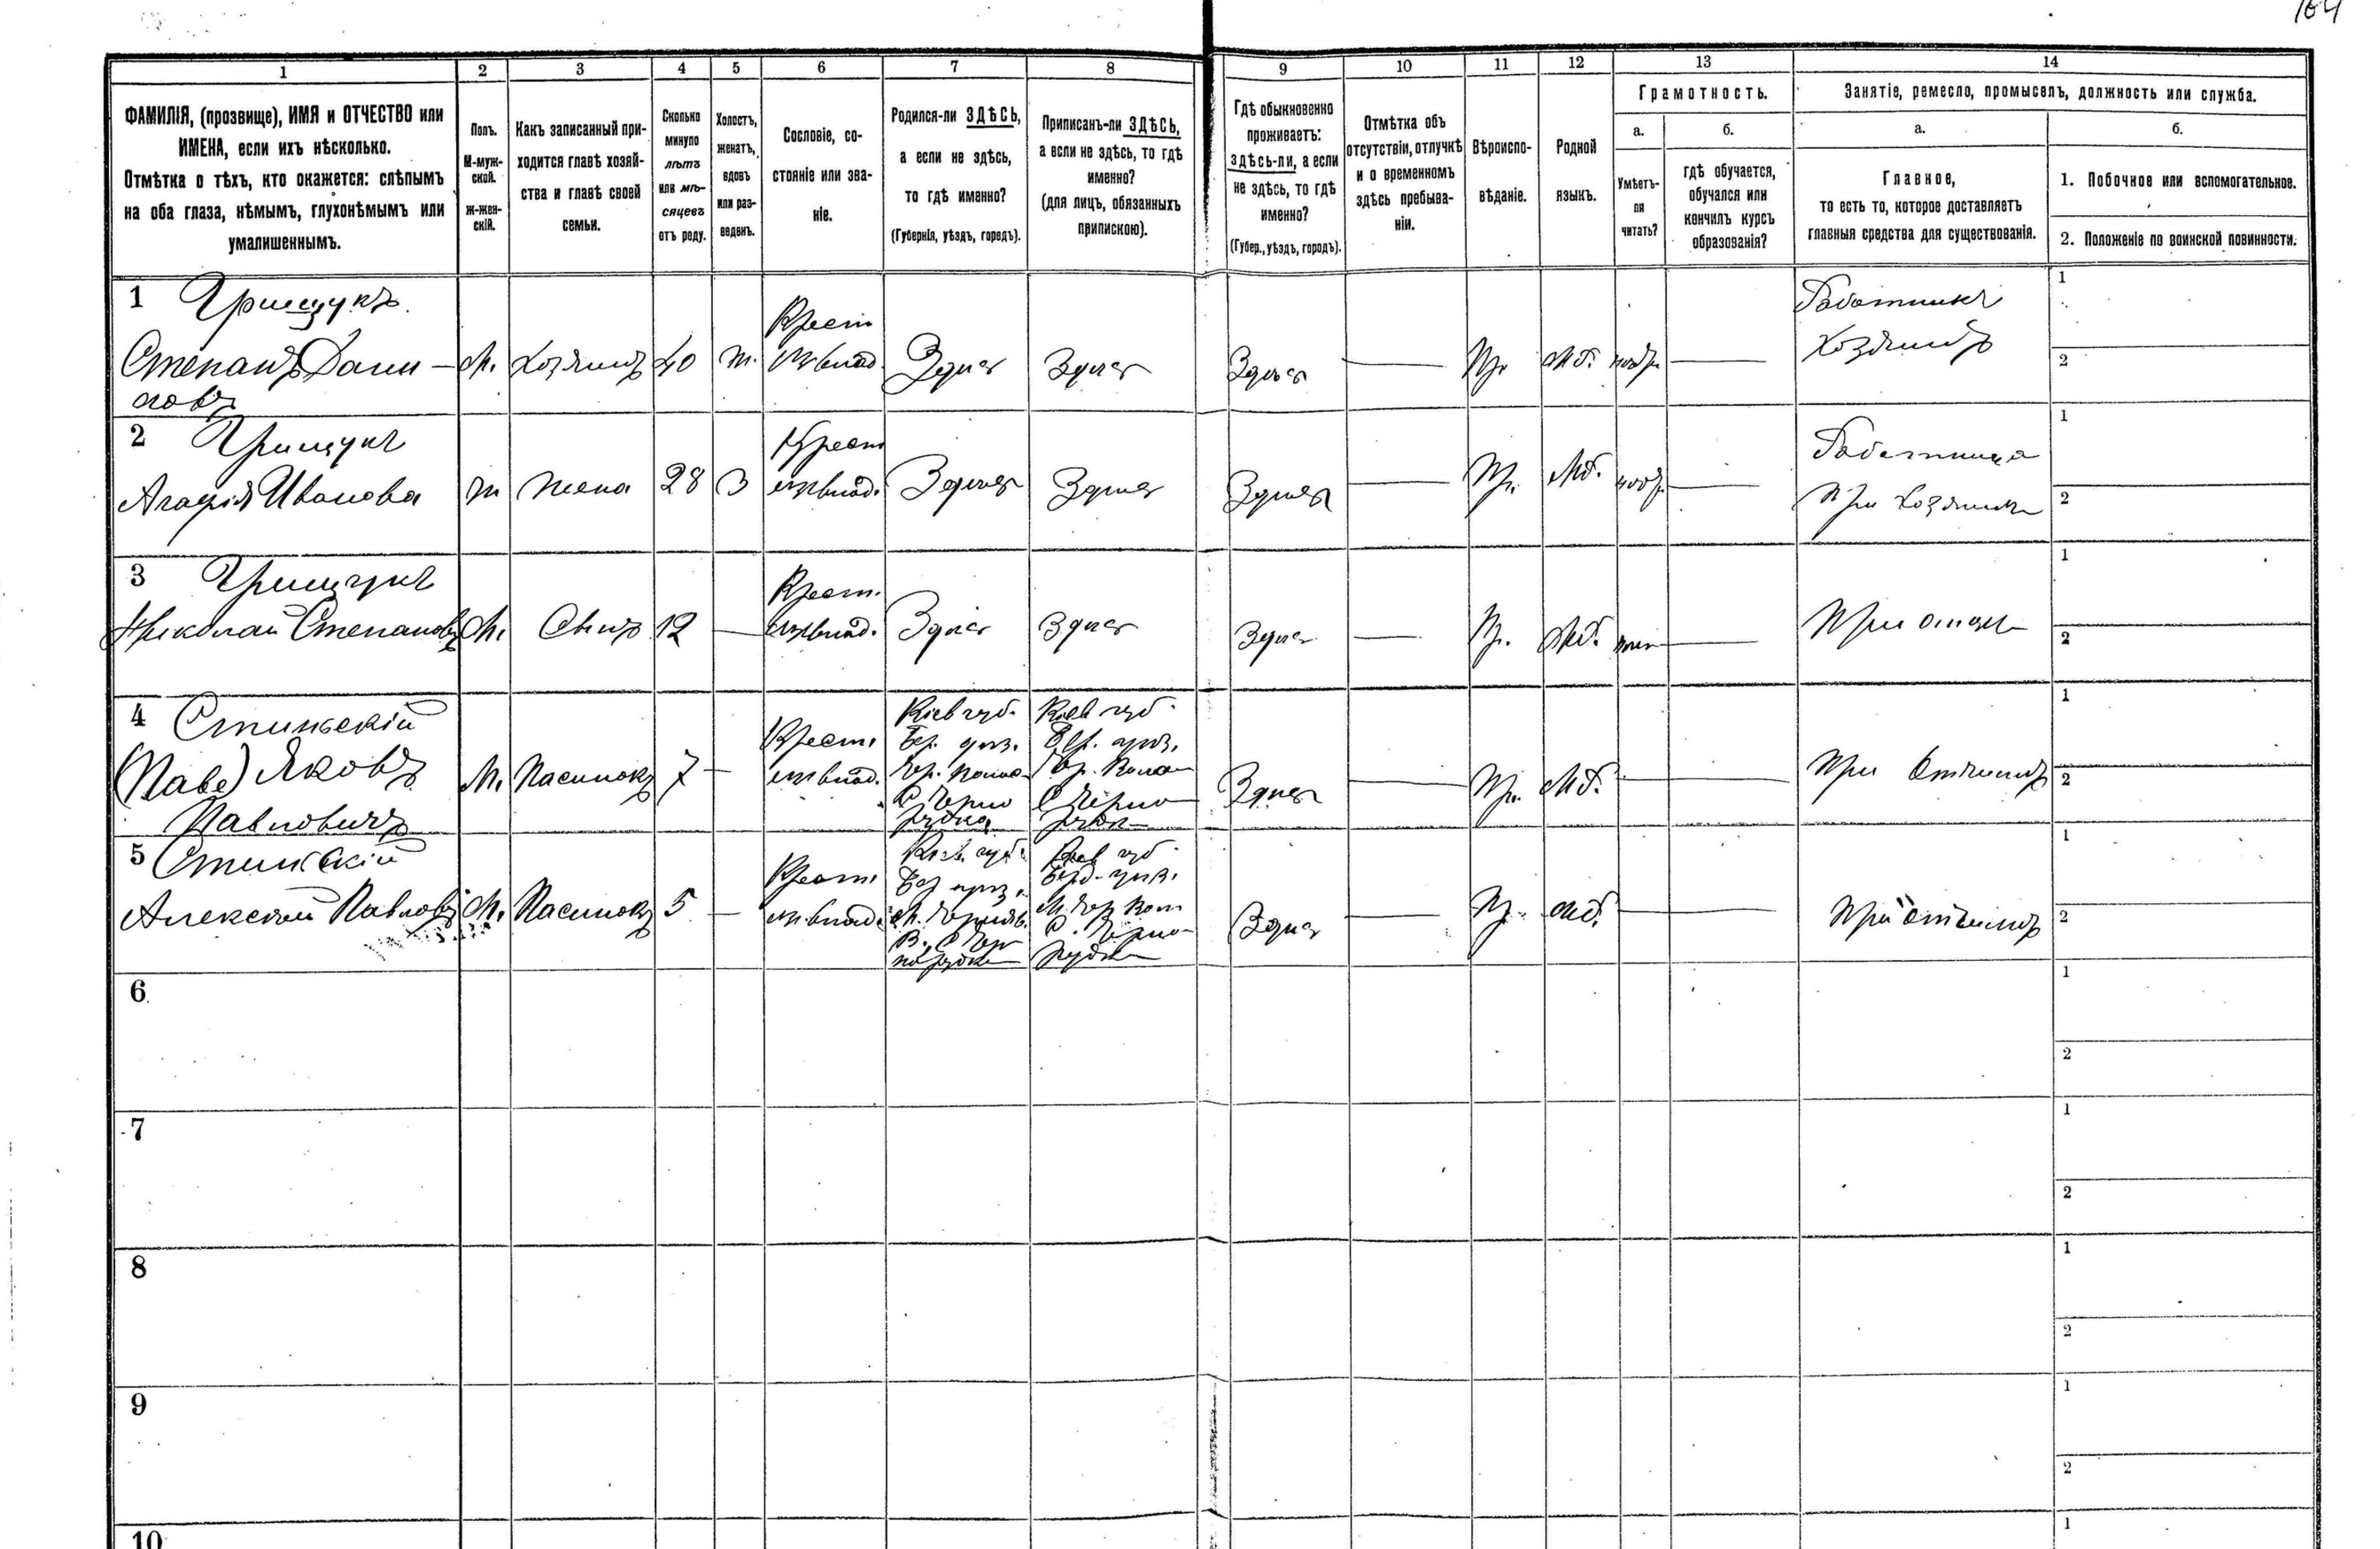 164
1
2
3
4
5
6
7
8
9
10
11
12
13
14
ФАМИЛІЯ, (прозвище), ИМЯ и ОТЧЕСТВО или
ИМЕНА, если ихъ нѣсколько.
Отмѣтка о тѣхъ, кто окажется: слѣпымъ
на оба глаза, нѣмымъ, глухонѣмымъ или
умалишеннымъ.
Полъ.
М-муж-
ской.
Ж-жен-
скій.
Какъ записанный при-
ходится главѣ хозяй-
ства и главѣ своей
семьи.
Сколько
минуло
лѣтъ
или мѣ-
сяцевъ
отъ роду.
Холостъ,
женатъ,
вдовъ
или раз-
веденъ.
Сословіе, со-
стояніе или зва-
ніе.
Родился-ли ЗДѢСЬ,
а если не здѣсь,
то гдѣ именно?
(Губернія, уѣздъ, городъ).
Приписанъ-ли ЗДѢСЬ,
а если не здѣсь, то гдѣ
именно?
(для лицъ, обязанныхъ
припискою).
Гдѣ обыкновенно
проживаетъ:
здѣсь-ли, а если
не здѣсь, то гдѣ
именно?
(Губер., уѣздъ, городъ).
Отмѣтка объ
отсутствіи, отлучкѣ
и о временномъ
здѣсь пребыва-
ніи.
Вѣроиспо-
вѣданіе.
Родной
языкъ.
Грамотность.
а.
Умѣетъ-
ли
читать?
б.
гдѣ обучается,
обучался или
кончилъ курсъ
образованія?
Занятіе, ремесло, промыселъ, должность или служба.
а.
Главное,
то есть то, которое доставляетъ
главныя средства для существованія.
б.
1. Побочное или вспомогательное.
2. Положеніе по воинской повинности.
1 Грищукъ
Степанъ Дани-
ловъ
М.
Хозяинъ
40
ж.
Крест
Здѣсь
Здѣсь
Здѣсь
Пр.
Мб.
Работникъ
Хозяинъ
1
2
2 Грищукъ
Агафія Иванова
ж
жена
28
З
Крест
Здѣсь
Здѣсь
Здѣсь
Пр.
Мб.
Работница
При хозяинѣ
1
2
3 Грищукъ
Николай Степановъ
М.
Сынъ
12
Крест.
Здѣсь
Здѣсь
Здѣсь
Пр.
Мб.
При отцѣ
1
2
4
(Паве) Яковъ
Павловичъ
М.
Пасинокъ
7
Крест.
Кіев губ.
Бер. уѣз.
Кіев губ.
Бер. уѣз.
Здѣсь
Пр.
Мб.
При Отчимѣ
1
2
5
Алексѣй Павловъ
М.
Пасинокъ
5
Крест.
Кіев. губ.
Бер уѣз.
Кіев губ.
Берд. уѣз.
Здѣсь
Пр.
Мб.
При отчимѣ
1
2
6
1
2
7
1
2
8
1
2
9
1
2
10
1